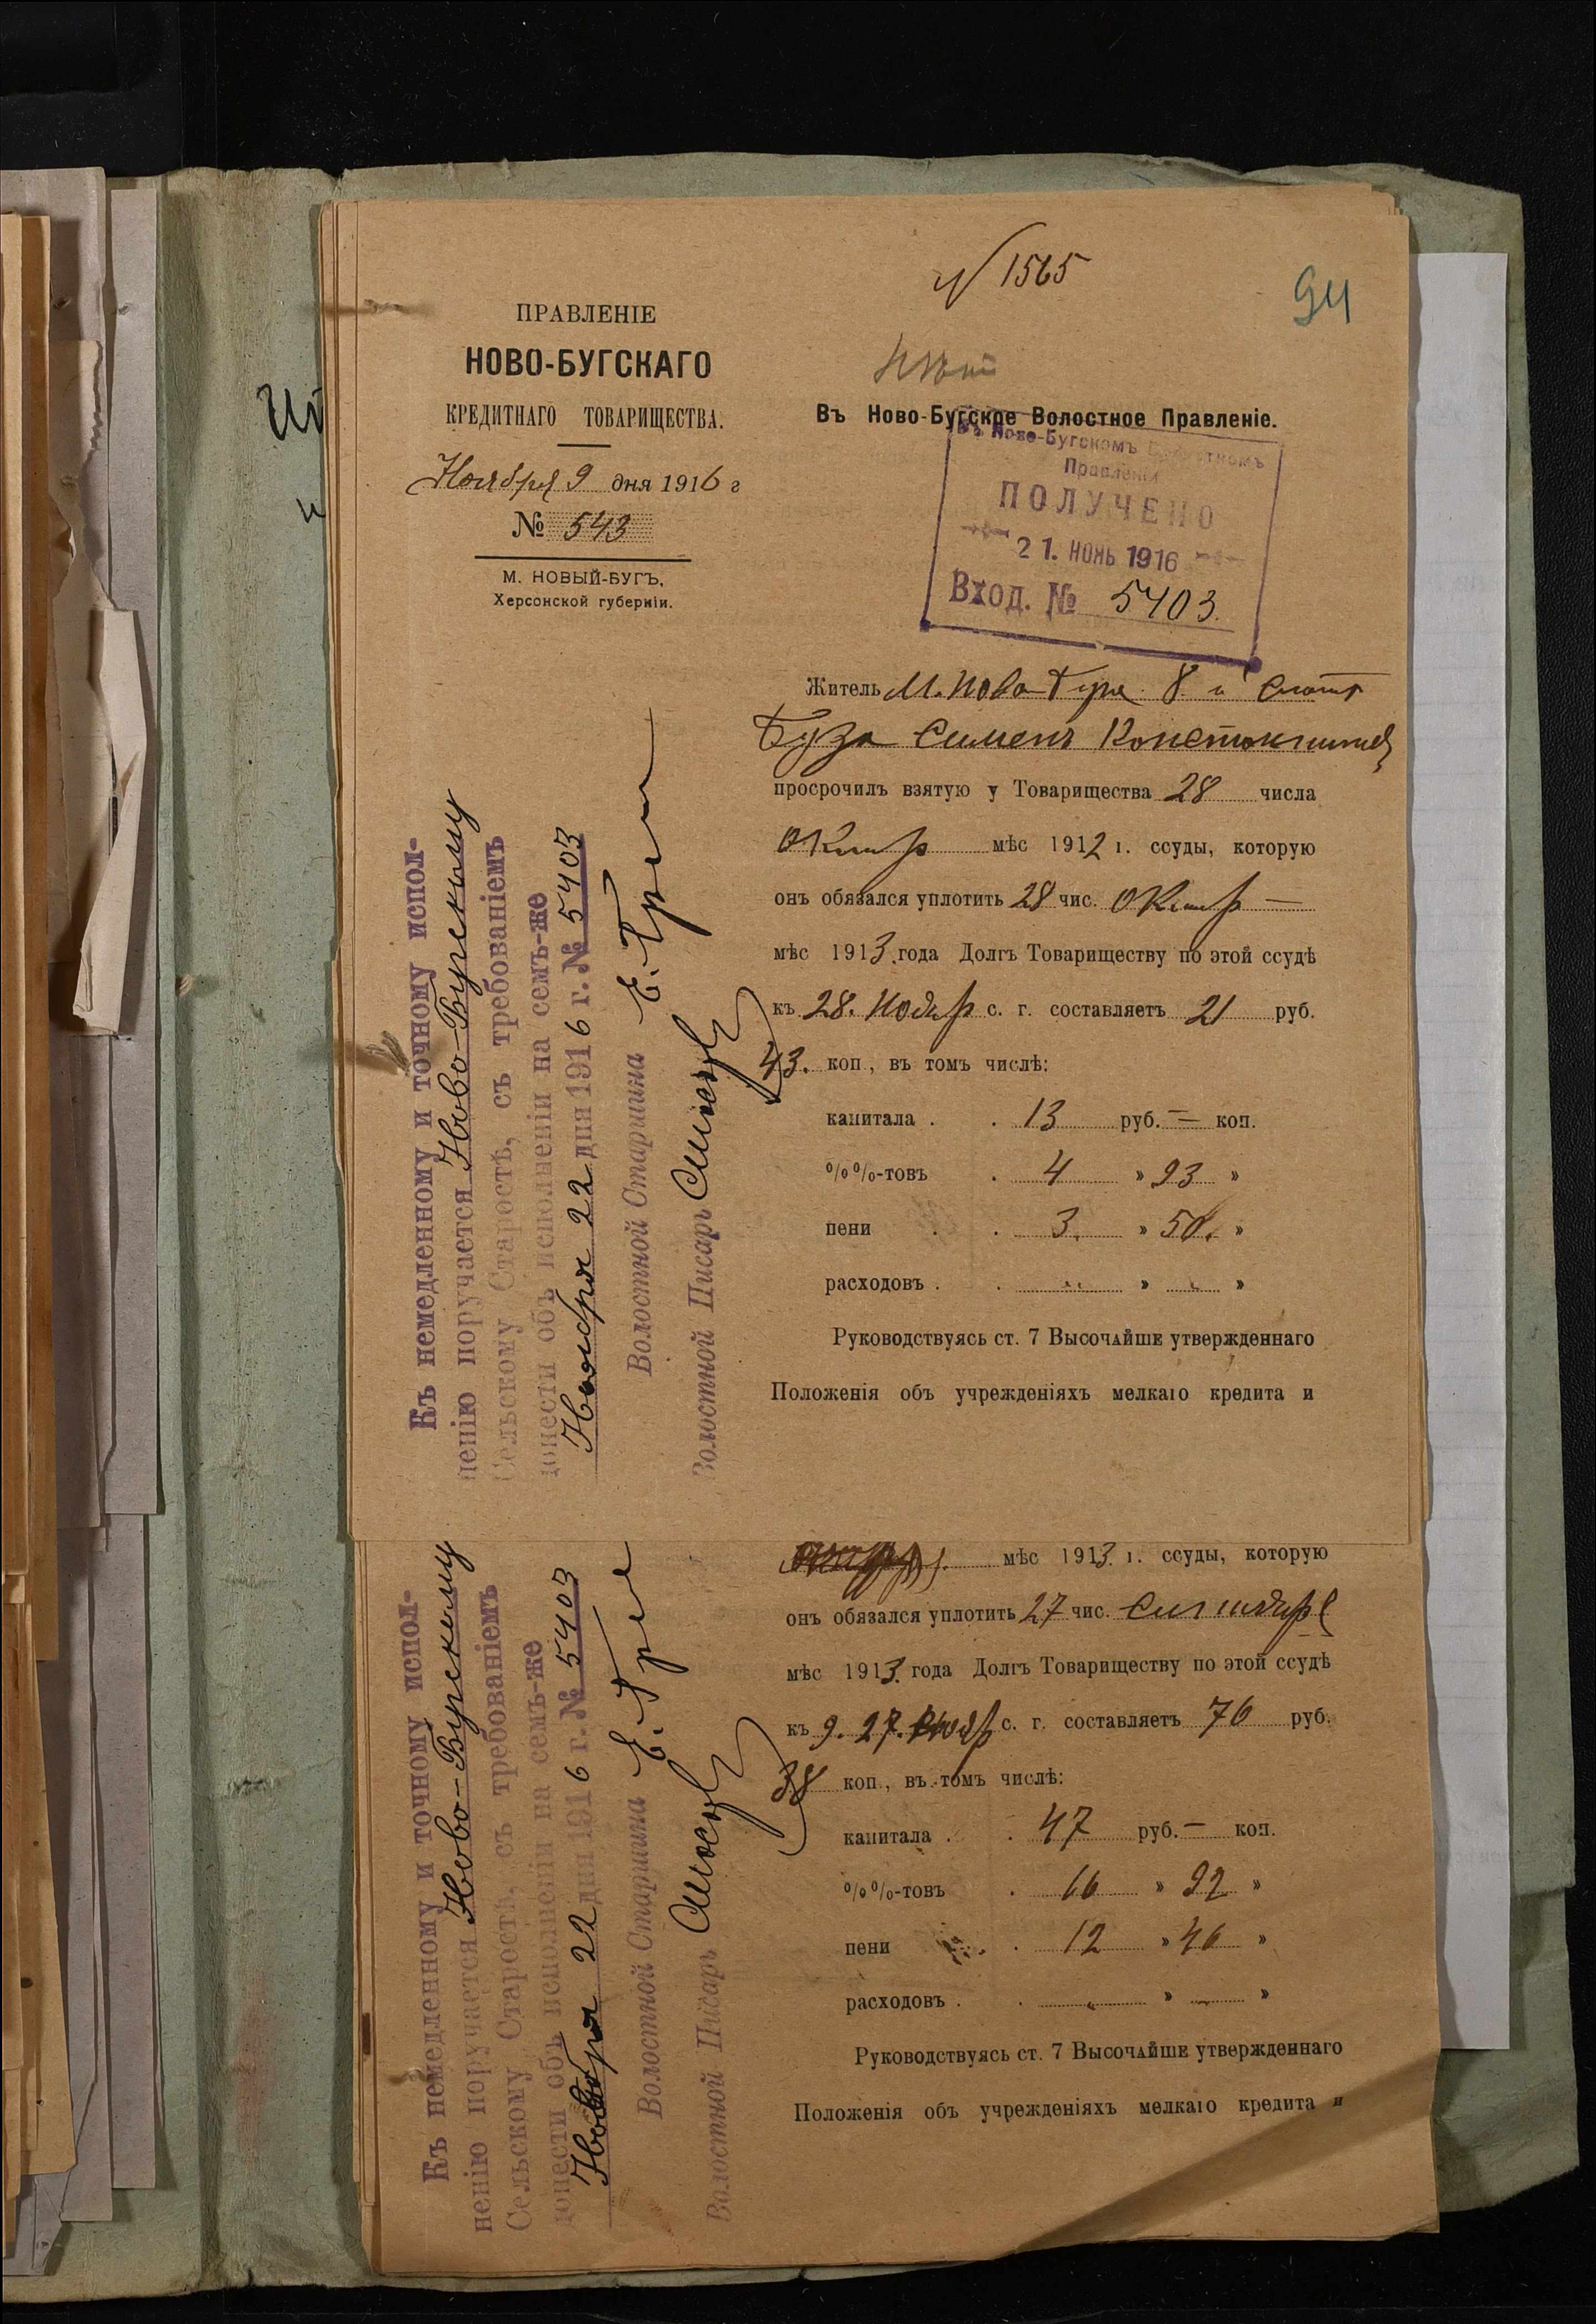 N 1565
94
ПРАВЛЕНІЕ
НОВО-БУГСКАГО
КРЕДИТНАГО ТОВАРИЩЕСТВА.
Ноября 9 дня 1916 г
№ 543
М. НОВЫЙ-БУГЪ,
Херсонской губерніи.
Въ Ново-Бугское Волостное Правленіе.
Въ Ново-Бугскомъ Волостномъ
Правленіи
ПОЛУЧЕНО
21. НОЯЬ 1916
Вход. № 5403.
Житель М. Ново 8
Буза Сименъ
просрочилъ взятую у Товарищества 28 числа
Октяр мѣс 1912 г. ссуды, которую
онъ обязался уплотить 28 чис. Октяр —
мѣс 1913 года Долгъ Товариществу по этой ссудѣ
къ 28. Нояр с. г. составляетъ 21 руб.
43. коп., въ томъ числѣ:
капитала . . 13 руб. — коп.
%%-товъ . 4 » 93 »
пени . . 3. » 50. »
расходовъ . . » »
Руководствуясь ст. 7 Высочайше утвержденнаго
Положенія объ учрежденіяхъ мелкаго кредита и
Къ немедленному и точному испол-
ненію поручается Ново-Бугскому
Сельскому Старостѣ, съ требованіемъ
донести объ исполненіи на семъ-же
Ноября 22 дня 1916 г. № 5403
Волостной Старшина Е.
Волостной Писарь
мѣс 1913 г. ссуды, которую
онъ обязался уплотить 27 чис.
мѣс 1913. года Долгъ Товариществу по этой ссудѣ
къ 9. 27. с. г. составляетъ 76 руб.
38 коп., въ томъ числѣ:
капитала . . 47 руб. — коп.
%%-товъ . 16 » 92 »
пени . 12 » 46 »
расходовъ . . » »
Руководствуясь ст. 7 Высочайше утвержденнаго
Положенія объ учрежденіяхъ мелкаго кредита и
Къ немедленному и точному испол-
ненію поручается Ново-Бугскому
Сельскому Старостѣ, съ требованіемъ
донести объ исполненіи на семъ-же
Ноября 22 дня 1916 г. № 5403
Волостной Старшина Е.
Волостной Писарь